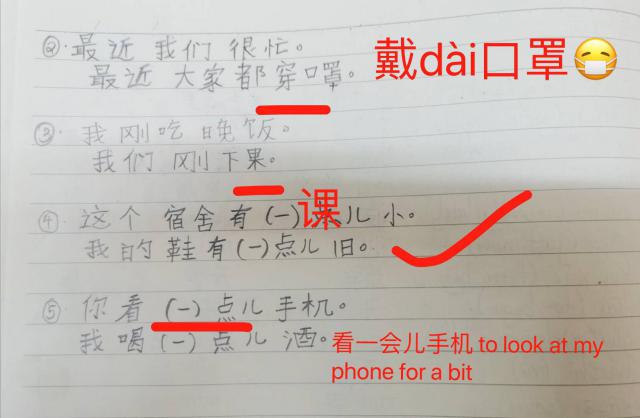 ②. 最近 我们 很忙。
最近 大家 都 穿口罩。
戴dài口罩😷
③. 我 刚吃 晚饭。
我们 刚 下果。
课
④. 这个 宿舍 有 (一) 点儿 小。
我的 鞋 有 (一) 点儿 旧。
⑤. 你 看 (一) 点儿 手机。
我 喝 (一) 点儿 酒。
看一会儿手机 to look at my
phone for a bit